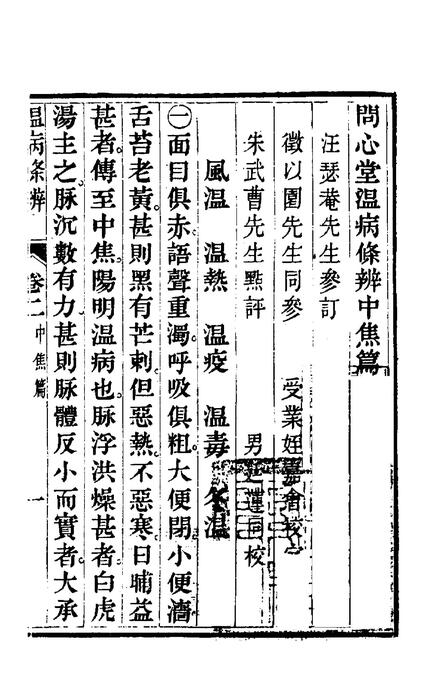 問心堂溫病條辨中焦篇
汪瑟菴先生參訂
徵以園先生同參　受業姪嘉會校
朱武曹先生點評　男廷蓮同校
風溫　溫熱　溫疫　溫毒　冬溫
㊀面目俱赤。語聲重濁。呼吸俱粗。大便閉。小便濇。
舌苔老黃。甚則黑有芒刺。但惡熱。不惡寒。日晡益
甚者。傳至中焦。陽明溫病也。脈浮洪燥甚者。白虎
湯主之。脈沉數有力。甚則脈體反小而實者。大承
溫病條辨　卷二中焦篇　一